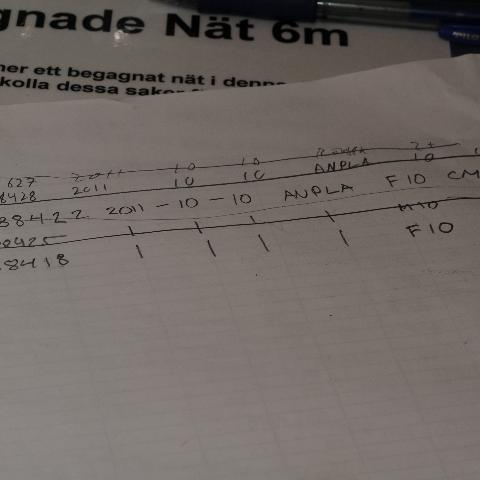 gnade Nät 6m
ner ett begagnat nät i denna
kolla dessa saker
627 2011 10 10
8428 2011 10 10 ANPLA 10
38422 2011-10-10 ANPLA F10 CM
8425 | | | | M10
8418 | | | | F10